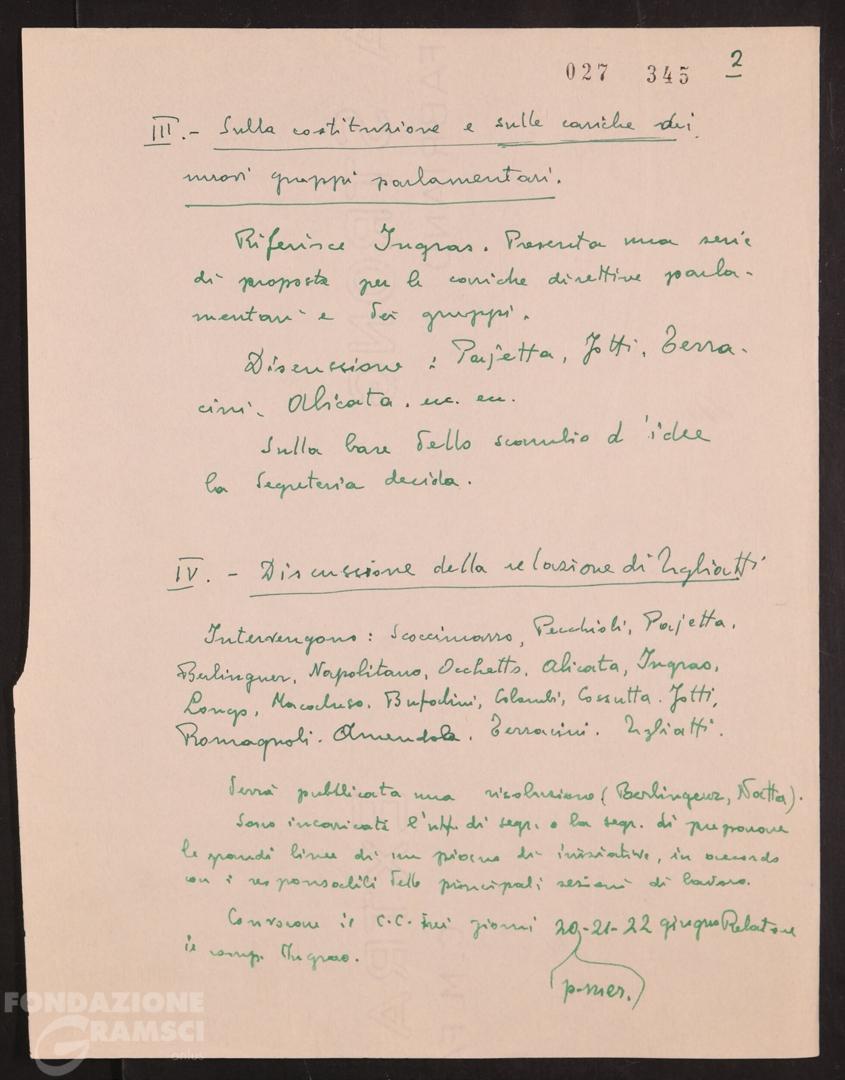 027 345 2
III. - Sulla costituzione e sulle cariche dei
nuovi gruppi parlamentari.
Riferisce Ingrao. Presenta una serie
di proposte per le cariche direttive parla-
mentari e dei gruppi.
Discussione : Pajetta, Jotti, Terra-
cini, Alicata, ecc. ecc.
Sulla base dello scambio d'idee
la Segreteria decida.
IV. - Discussione della relazione di Togliatti
Intervengono: Scoccimarro, Pecchioli, Pajetta,
Berlinguer, Napolitano, Occhetto, Alicata, Ingrao,
Longo, Macaluso, Bufalini, Colombi, Cossutta, Jotti,
Romagnoli, Amendola, Terracini, Togliatti.
Verrà pubblicata una risoluzione (Berlinguer, Natta).
Sono incaricati l'uff. di segr. e la segr. di preparare
le grandi linee di un piano di iniziative, in accordo
con i responsabili delle principali sezioni di lavoro.
Convocare il C.C. nei giorni 20-21-22 giugno Relatore
il comp. Ingrao.
(p. mer.)
FONDAZIONE
GRAMSCI
onlus